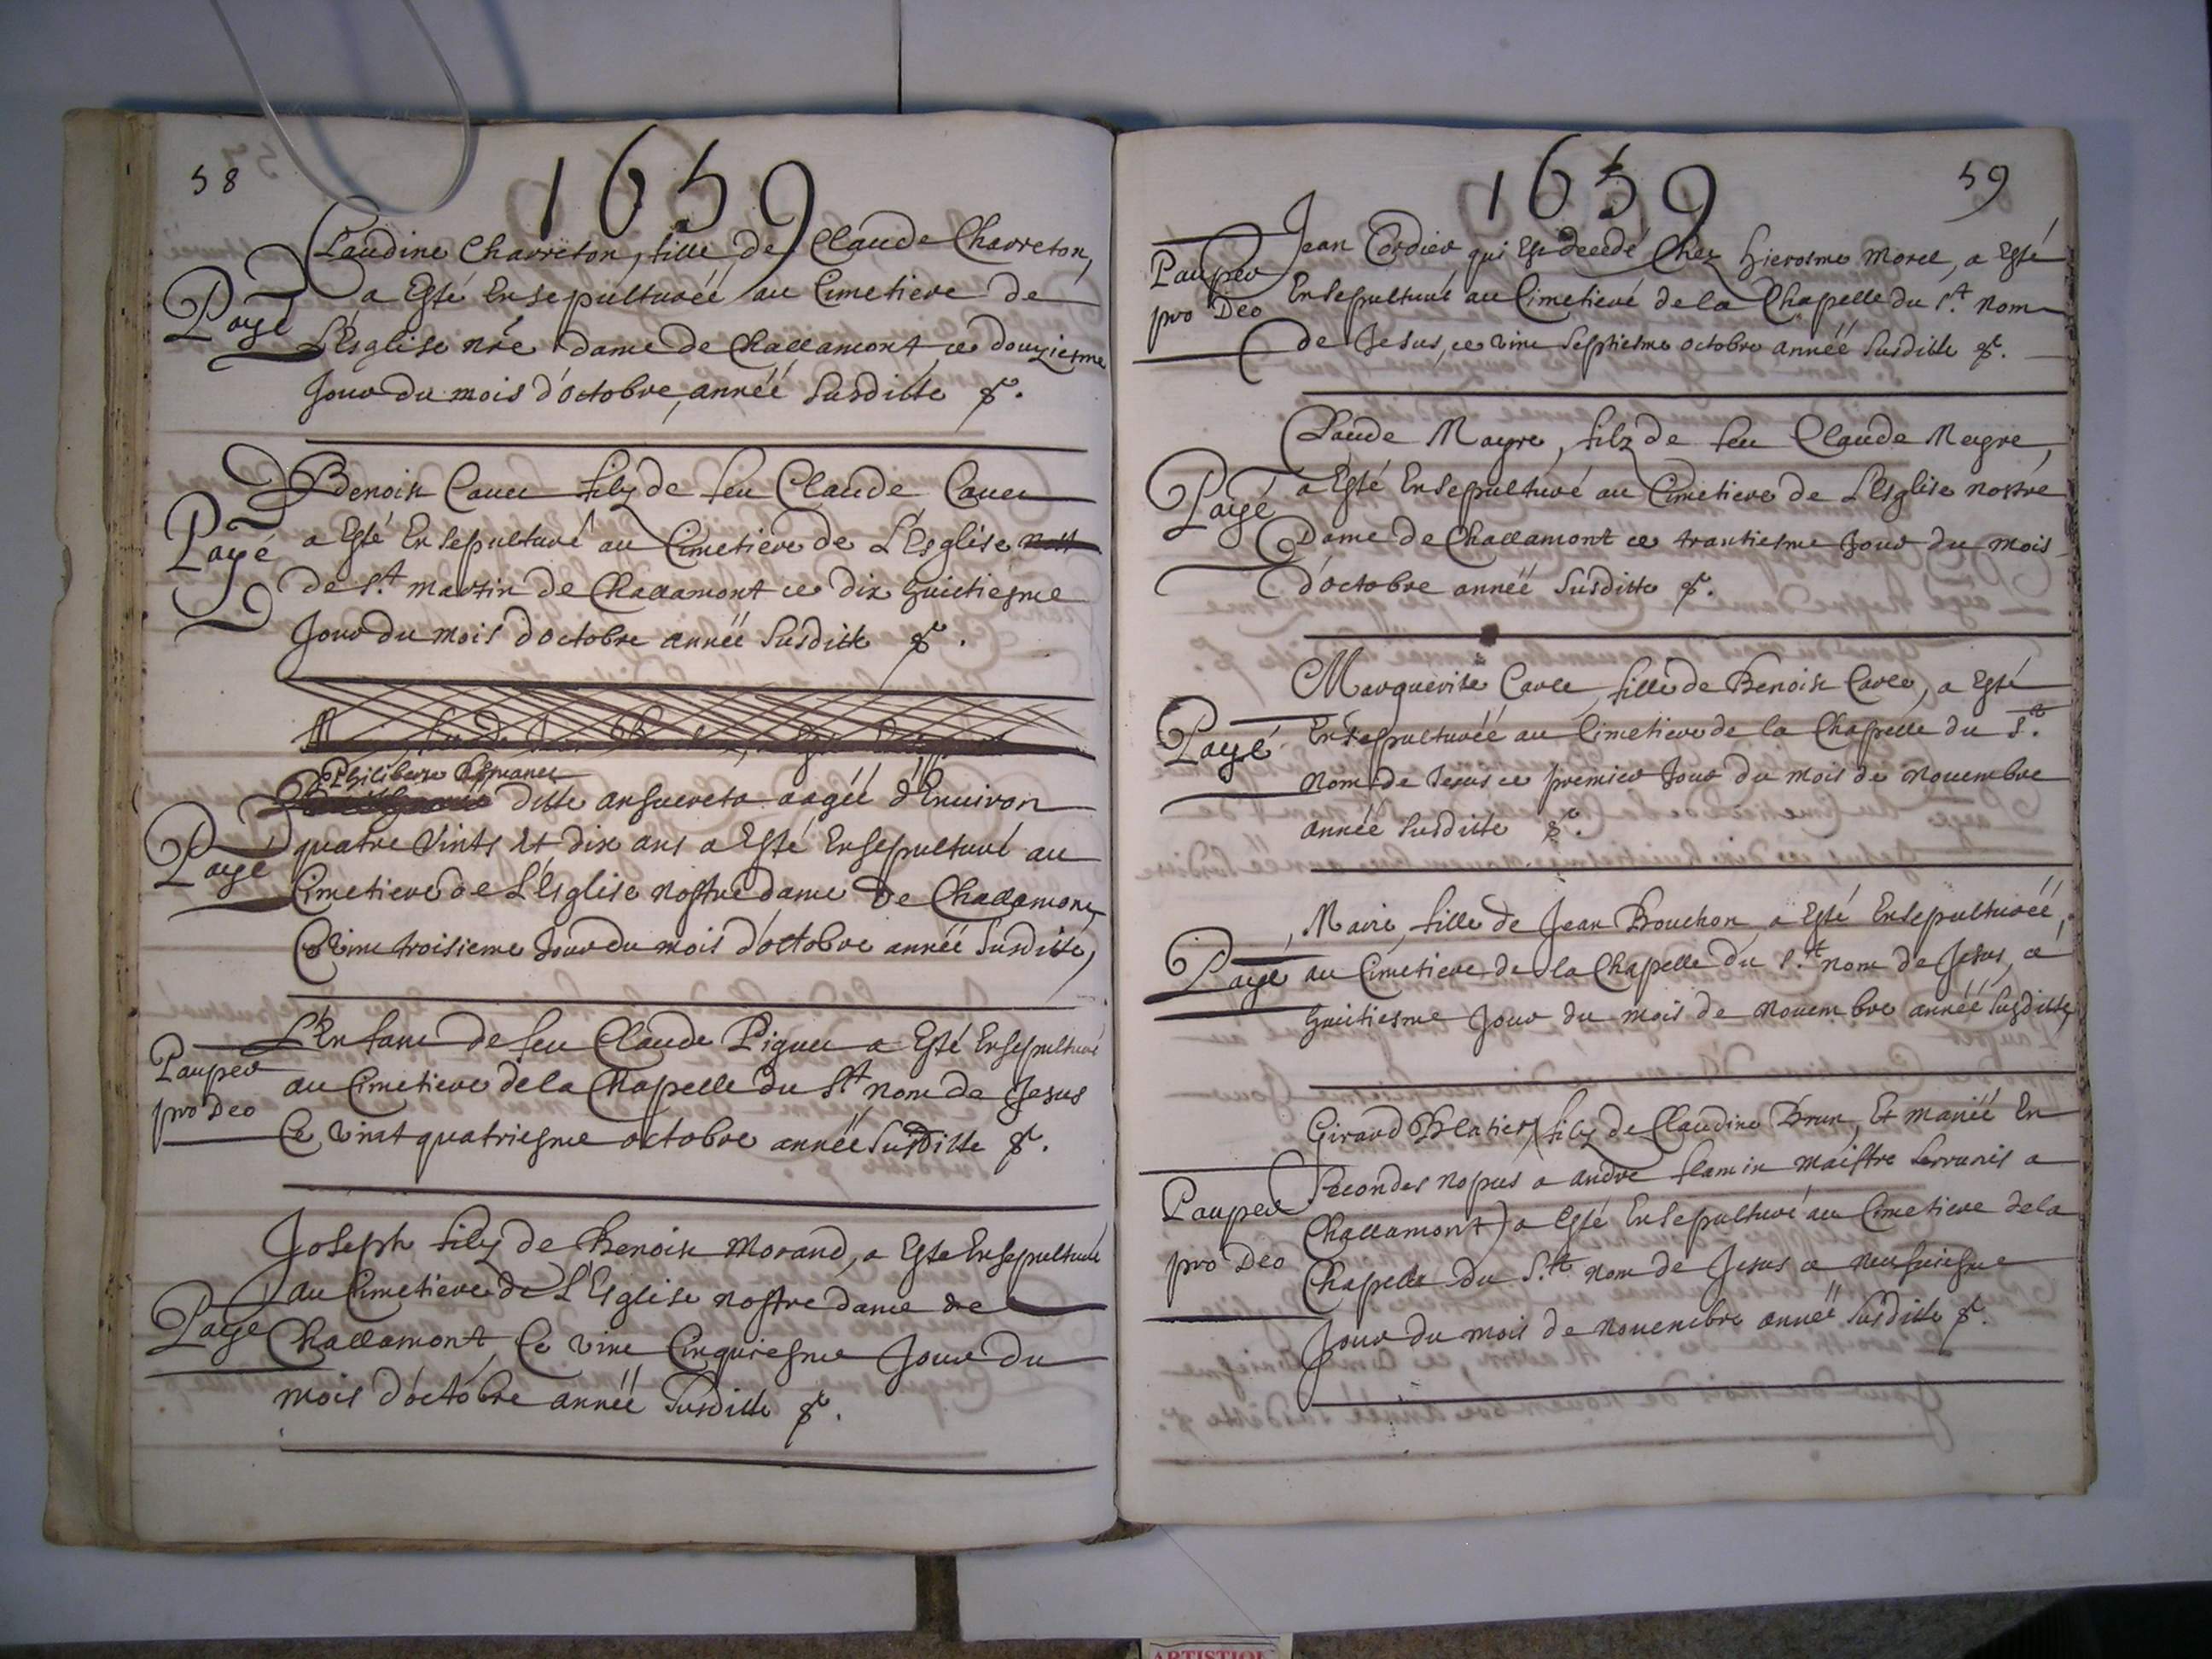 58
1659
Claudine Charreton, fille de Claude Charreton,
Payé
a Esté Ensepulturéé au Cimetiere de
L'Esglise nr̃e dame de Challamont ce douziesme
Jour du mois d'octobre, annéé Susditte &.
Benoist fily de feu Claude
Payé
a Esté Ensepulturé au Cimetiere de L'Esglise
de S.t Martin de Challamont ce dix huictiesme
Jour du mois d'octobre annéé Susditte &.
Philiberte
ditte aagéé d'Enuiron
Payé
quatre Vints Et dix ans a Esté Ensepulturé au
Cimetiere de L'Esglise nostre dame De Challamont
Ce Vint troisieme Jour du mois d'octobre annéé Susditte,
L'Enfant de feu Claude Piguet a Esté Ensepulturé
Pauper
pro Deo
au Cimetiere de la Chapelle du St nom de Jesus
Ce Vint quatriesme octobre annéé Susditte &.
Joseph fily de Benoist Morand, a Esté Ensepulturé
Payé
au Cimetiere de L'Esglise nostre dame de
Challamont, Ce vint Cinquiesme Jour du
mois d'octobre annéé Susditte &.
1659
59
Jean Cordier qui Est decedé Chez Hierosme Morel, a Esté
Pauper
pro Deo
Ensepulturé au Cimetieré de la Chapelle du S.t nom
de Jesus, ce vint Septiesme octobre annéé Susditte &.
Claude Mayre, filz de feu Claude Meyre,
Payé
a Esté Ensepulturé au Cimetiere de L'Esglise nostre
Dame de Challamont ce trantiesme Jour du mois
d'octobre annéé Susditte &.
Marguerite Carle, fille de Benoist Carle, a Esté
Payé
Ensepulturéé au Cimetiere de la Chapelle du S.t
nom de Jesus ce premier Jour du mois de Nouembre
annéé Susditte &.
Marie, fille de Jean Bouchon, a Esté Ensepulturéé,
Payé
au Cimetiere de la Chapelle du S.t nom de Jesus, ce
huictiesme Jour du mois de Nouembre annéé Susditte,
Girard fily de Claudine Brun, Et mariéé En
Secondes nopces a andre flamin maistre a
Pauper
pro Deo
Challamont) a Esté Ensepulturé au Cimetiere de la
Chapelle du S.t nom de Jesus ce neufuiesme
Jour du mois de nouembre annéé Susditte &.